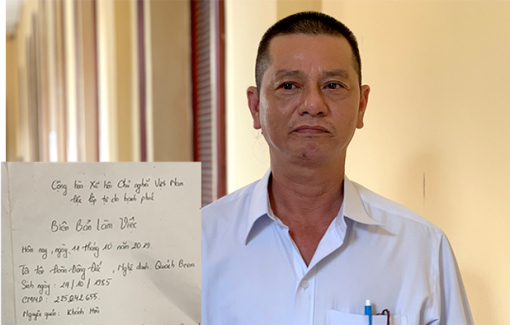 Cộng hòa Xã hội Chủ nghĩa Việt Nam
Độc lập tự do hạnh phúc
Biên Bản Làm Việc
Hôm nay, ngày 11 tháng 10 năm 2019
Tôi tên Đoàn , Nghệ danh: Quách Beem
Sinh ngày: 14/10/1985
CMND: 225242655.
Nguyên quán: Khánh Hòa